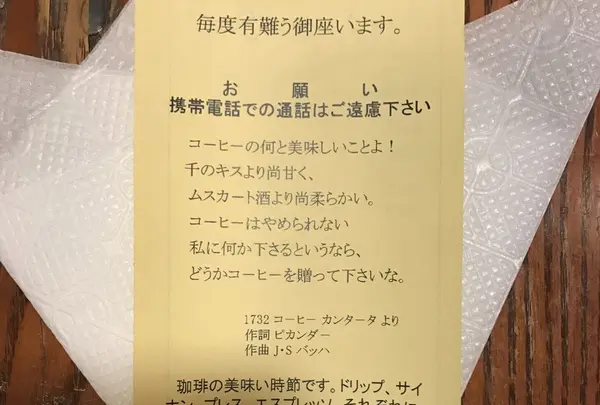 毎度有難う御座います。
お願い
携帯電話での通話はご遠慮下さい
コーヒーの何と美味しいことよ！
千のキスより尚甘く、
ムスカート酒より尚柔らかい。
コーヒーはやめられない
私に何か下さるというなら、
どうかコーヒーを贈って下さいな。
1732 コーヒー カンタータ より
作詞 ピカンダー
作曲 J・S バッハ
珈琲の美味い時節です。ドリップ、サイ
ホン、プレス、エスプレッソ、それぞれに